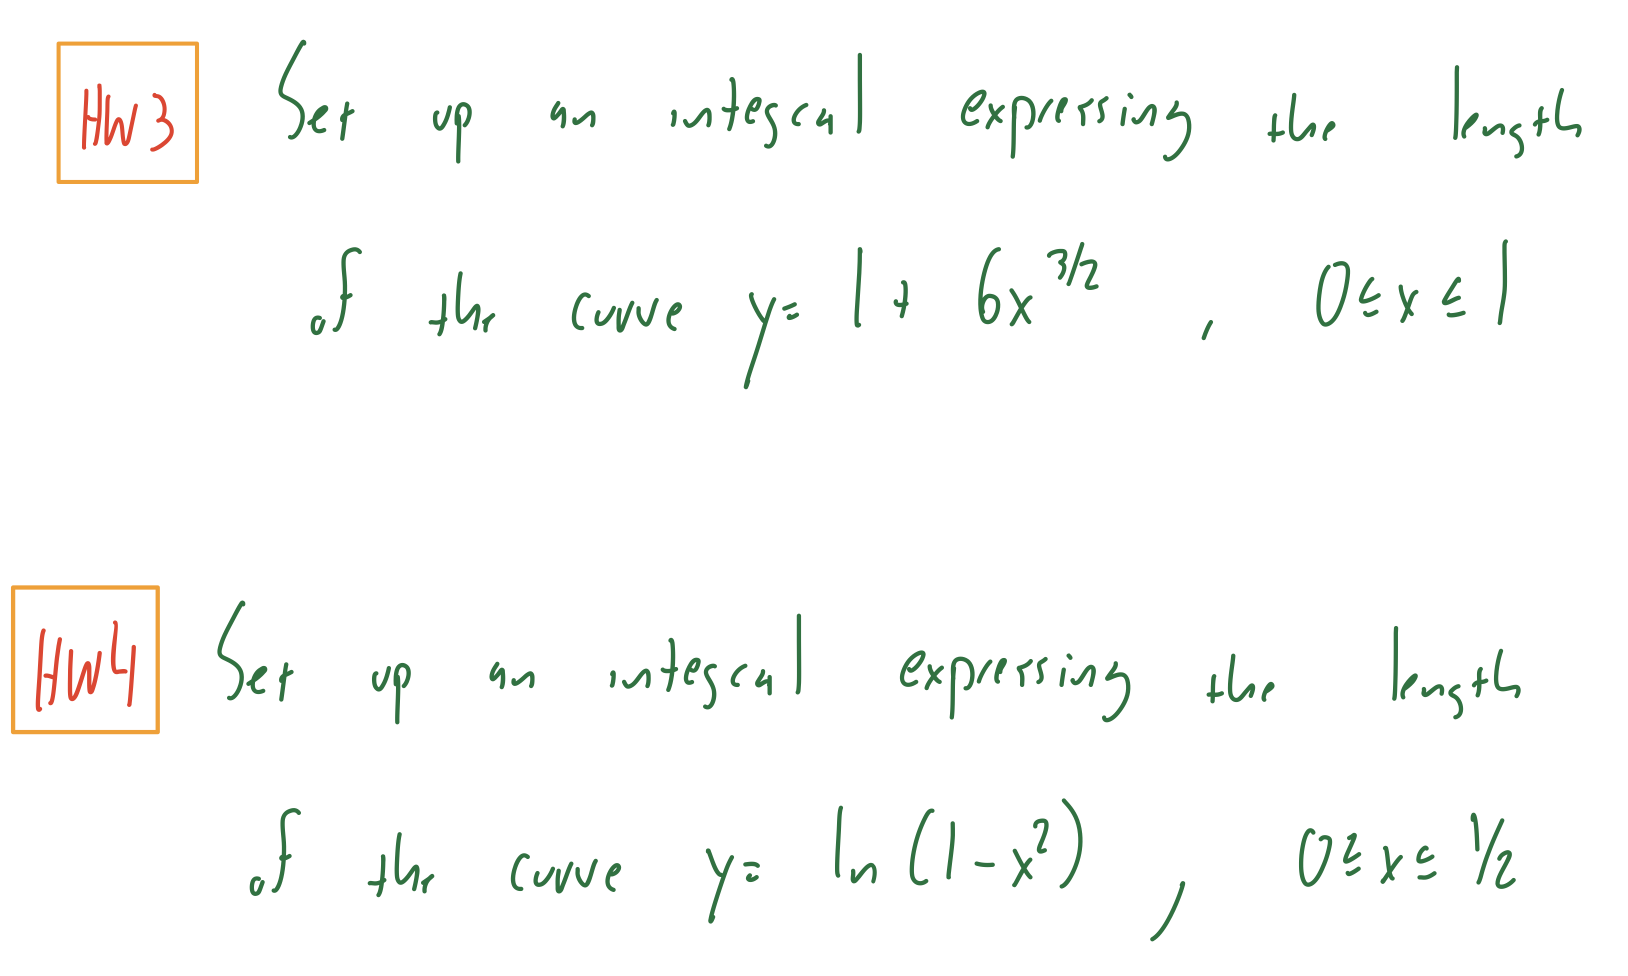 HW3 Set up an integral expressing the length
of the curve y= 1 + 6x^{3/2} , 0 ≤ x ≤ 1
HW4 Set up an integral expressing the length
of the curve y= ln(1-x^2) , 0 ≤ x ≤ 1/2